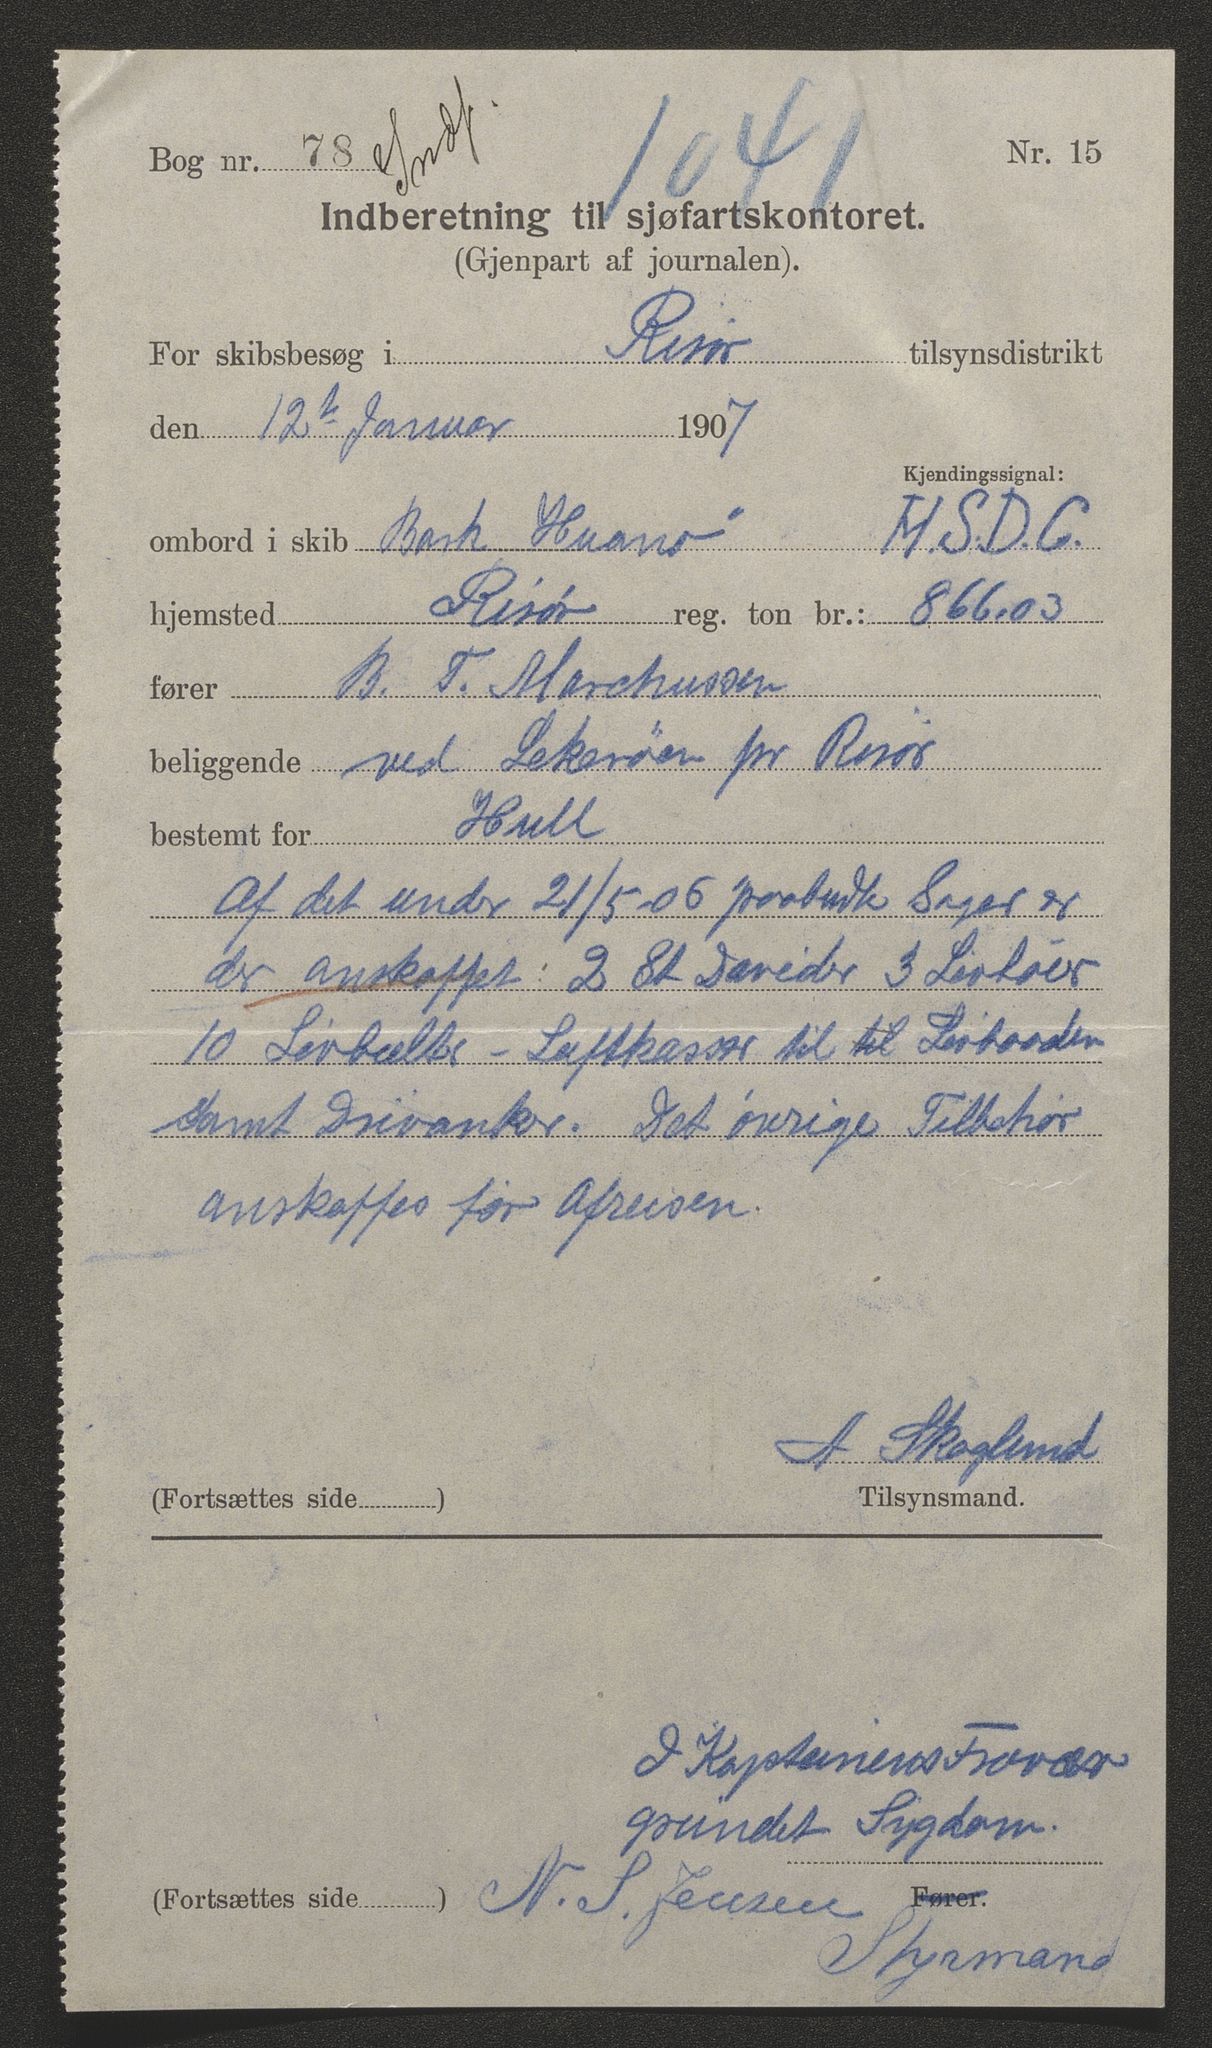 Bog nr. 78 Indf. 1041 Nr. 15
Indberetning til sjøfartskontoret.
(Gjenpart af journalen).
For skibsbesøg i Risør tilsynsdistrikt
den 12t Januar 1907
Kjendingssignal:
ombord i skib Bark Huanø M.S.D.C.
hjemsted Risør reg. ton br.: 866.03
fører B. T. Marchussen
beliggende ved pr Risør
bestemt for Hull
Af det under 21/5-06 paabudte Sager er
der anskaffet: 2 St Davider 3 Livbøier
10 Livbælter - Luftkasser til til Livbaaden
samt Drivanker. Det øvrige Tilbehør
anskaffes før Afreisen.
A Skoglund
(Fortsættes side ) Tilsynsmand.
I Kapteinens Fravær
grundet Sygdom.
(Fortsættes side ) N. S. Jensen Fører.
Styrmand